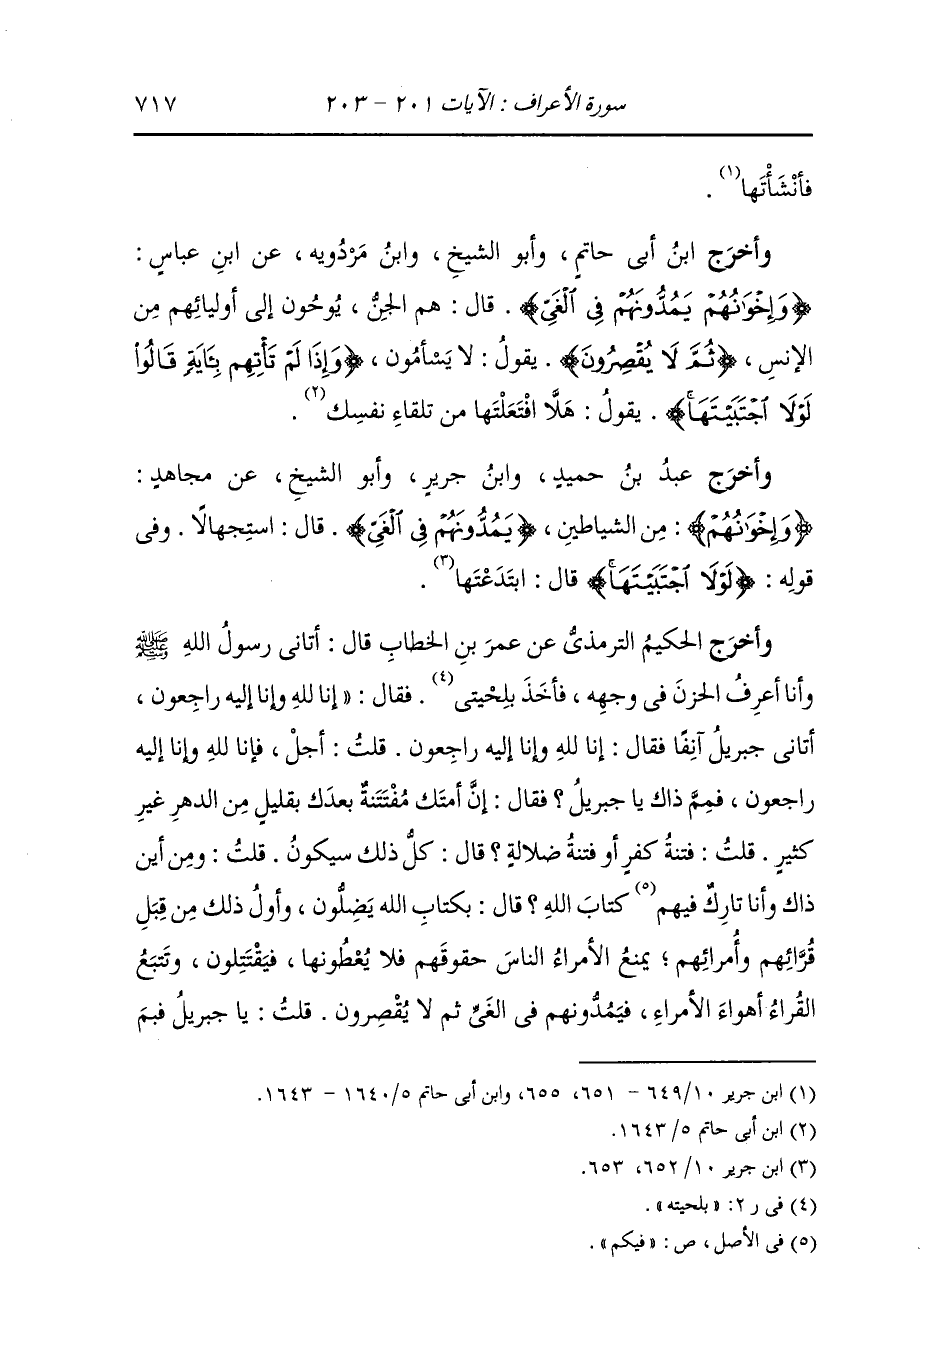 سورة الأعراف : الآيات ٢٠١ - ٢٠٣ ٧١٧
فأنْشَأْتَها(١) .
وأخرَج ابنُ أبى حاتمٍ ، وأبو الشيخِ ، وابنُ مَرْدُويه ، عن ابنِ عباسٍ :
﴿وَإِخْوَٰنُهُمْ يَمُدُّونَهُمْ فِى ٱلْغَىِّ﴾ . قال : هم الجنُّ ، يُوحُون إلى أوليائِهم مِن
الإنسِ ، ﴿ثُمَّ لَا يُقْصِرُونَ﴾ . يقولُ : لا يَسْأمُون ، ﴿وَإِذَا لَمْ تَأْتِهِم بِـَٔايَةٍ قَالُوا۟
لَوْلَا ٱجْتَبَيْتَهَا ۚ﴾ . يقولُ : هَلَّا افْتَعَلْتَها من تلقاءِ نفسِك(٢) .
وأخرَج عبدُ بنُ حميدٍ ، وابنُ جريرٍ ، وأبو الشيخِ ، عن مجاهدٍ :
﴿وَإِخْوَٰنُهُمْ﴾ : مِن الشياطينِ ، ﴿يَمُدُّونَهُمْ فِى ٱلْغَىِّ﴾ . قال : استِجهالًا . وفى
قولِه : ﴿لَوْلَا ٱجْتَبَيْتَهَا ۚ﴾ قال : ابتَدَعْتَها(٣) .
وأخرَج الحكيمُ الترمذىُّ عن عمرَ بنِ الخطابِ قال : أتانى رسولُ اللهِ ﷺ
وأنا أعرِفُ الحزنَ فى وجهِه ، فأخَذَ بلِحْيتى(٤) . فقال : « إنا للهِ وإنا إليه راجِعون ،
أتانى جبريلُ آنِفًا فقال : إنا للهِ وإنا إليه راجعون . قلتُ : أجلْ ، فإنا للهِ وإنا إليه
راجعون ، فمِمَّ ذاك يا جبريلُ ؟ فقال : إنَّ أمتَك مُفْتَتَنةٌ بعدَك بقليلٍ مِن الدهرِ غيرِ
كثيرٍ . قلتُ : فتنةُ كفرٍ أو فتنةُ ضلالةٍ ؟ قال : كلُّ ذلك سيكونُ . قلتُ : ومِن أين
ذاك وأنا تارِكٌ فيهم(٥) كتابَ اللهِ ؟ قال : بكتابِ الله يَضِلُّون ، وأولُ ذلك مِن قِبَلِ
قُرَّائِهم وأُمرائِهم ؛ يمنعُ الأمراءُ الناسَ حقوقَهم فلا يُعْطُونها ، فيَقْتَتِلون ، وتَتبَعُ
القُراءُ أهواءَ الأمراءِ ، فيَمُدُّونهم فى الغَىِّ ثم لا يُقْصِرون . قلتُ : يا جبريلُ فبمَ
(١) ابن جرير ٦٤٩/١٠ - ٦٥١، ٦٥٥، وابن أبى حاتم ١٦٤٠/٥ - ١٦٤٣.
(٢) ابن أبى حاتم ١٦٤٣/٥.
(٣) ابن جرير ٦٥٢/١٠، ٦٥٣.
(٤) فى ر ٢: « بلحيته » .
(٥) فى الأصل ، ص : « فيكم » .